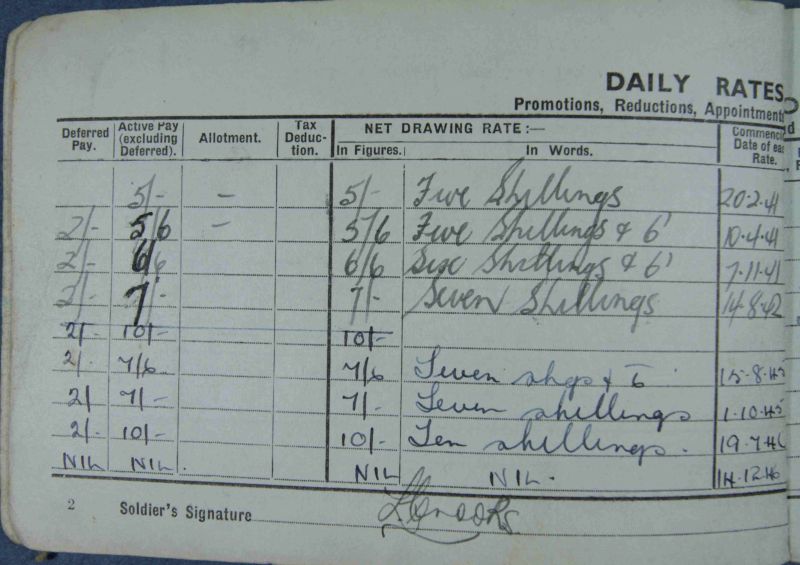 DAILY RATES
Promotions, Reductions, Appointment
Deferred Pay. Active Pay (excluding Deferred). Allotment. Tax Deduc-tion. NET DRAWING RATE:— Commenci Date of ea Rate.
In Figures. In Words.
5/- – 5/- Five Shillings 20.2.41
2/- 5/6 – 5/6 Five Shillings & 6' 10.4.41
2/- 6/6 6/6 Six Shillings & 6' 7.11.41
2/- 7/- 7/- Seven Shillings 14.8.42
2/- 10/- 10/-
2/- 7/6 7/6 Seven shgs & 6 15.8.45
2/- 7/- 7/- Seven shillings 1.10.45
2/- 10/- 10/- Ten shillings. 19.7.46
NIL NIL. NIL NIL. 14.12.46
2 Soldier's Signature